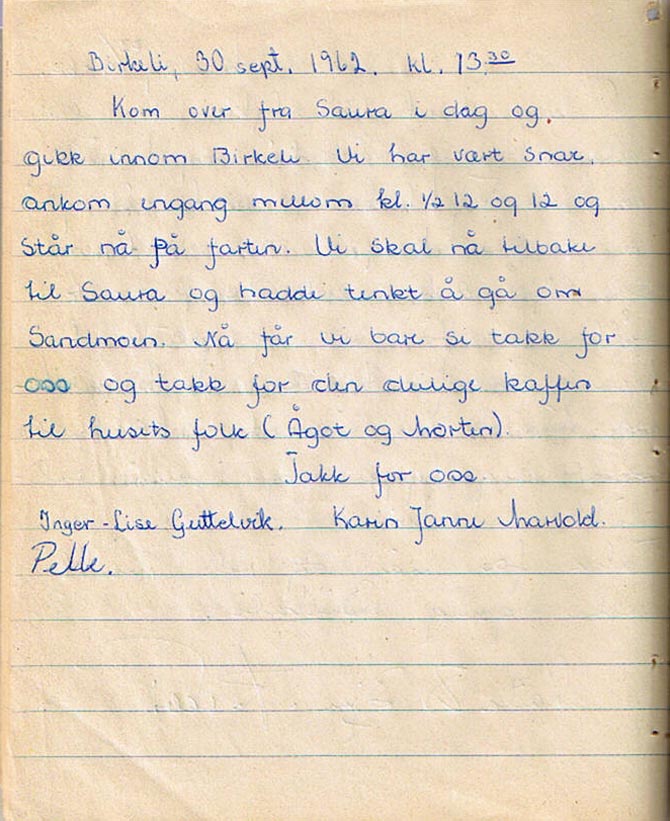 Birkeli, 30 sept. 1962. kl. 13.30
Kom over fra Saura i dag og
gikk innom Birkeli. Vi har vært snar,
ankom ingang mellom kl. 1/2 12 og 12 og
står nå på farten. Vi skal nå tilbake
til Saura og hadde tenkt å gå om
Sandmoen. Nå får vi bare si takk for
oss og takk for den deilige kaffen
til husets folk (Ågot og Morten).
Takk for oss.
Inger-Lise Guttelvik. Karin Janne Marvold.
Pelle.